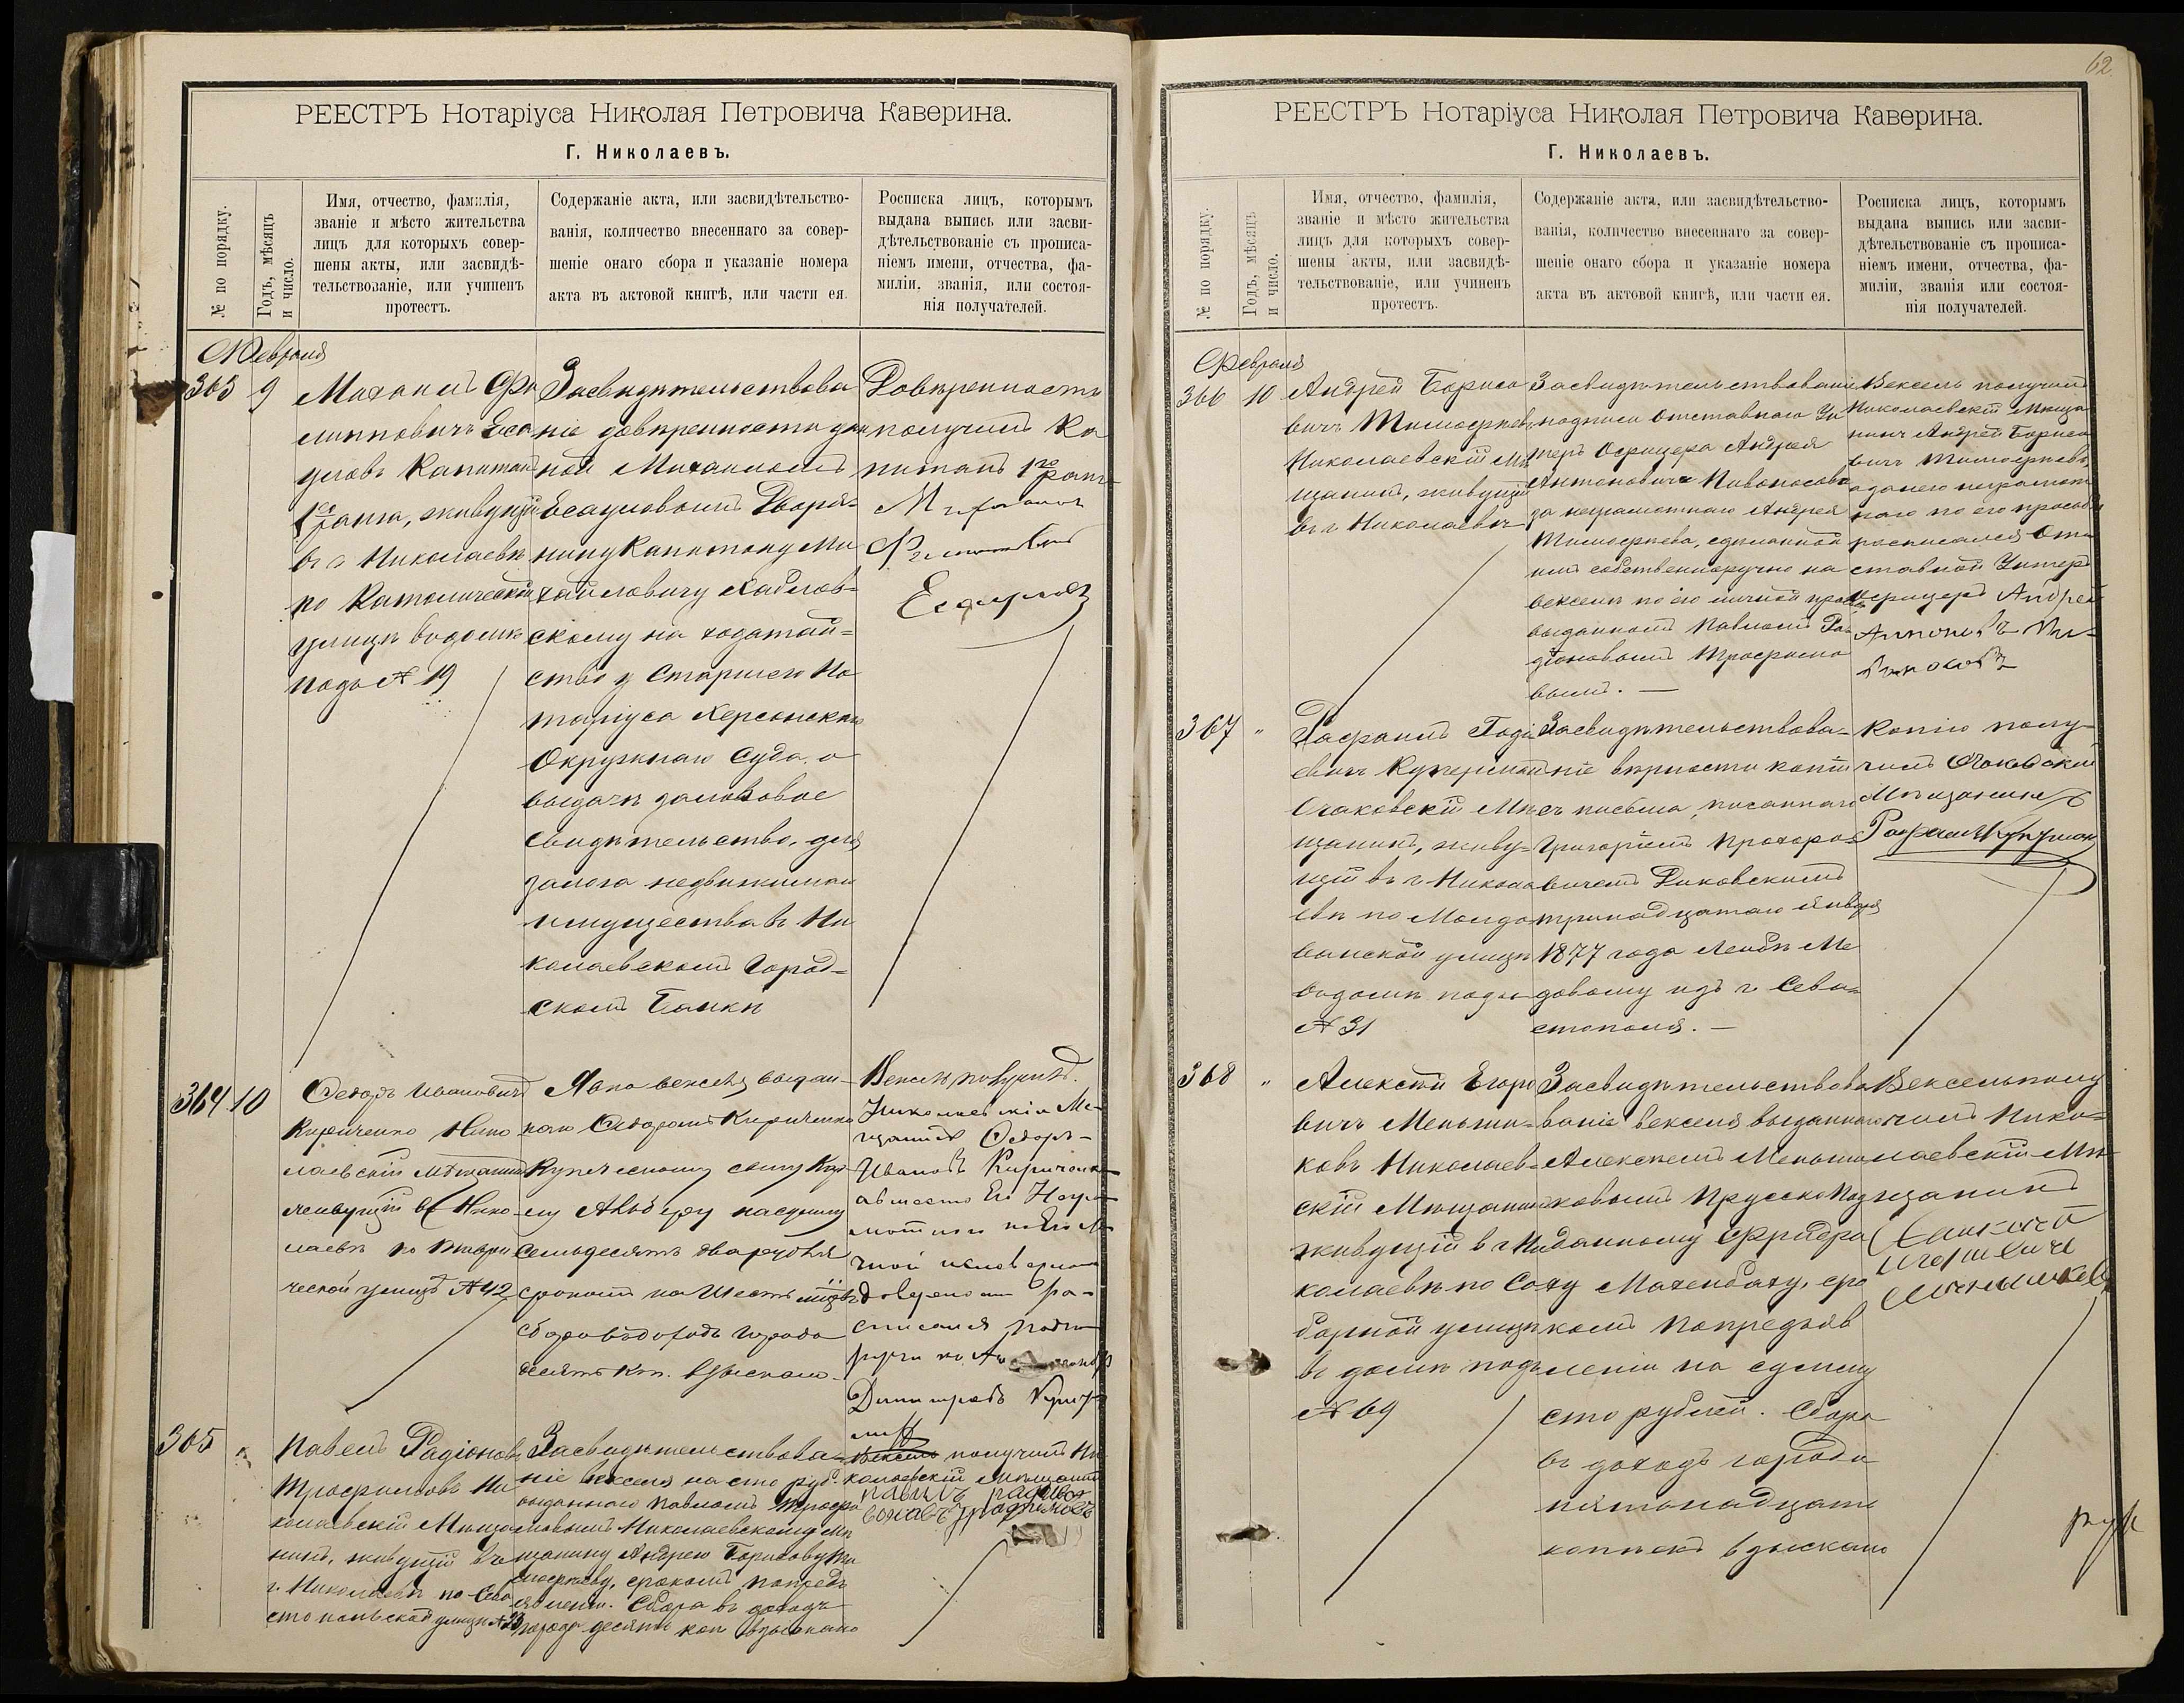 РЕЕСТРЪ Нотаріуса Николая Петровича Каверина.
Г. Николаевъ.
№ по порядку.
Годъ, мѣсяцъ
и число.
Имя, отчество, фамилія,
званіе и мѣсто жительства
лицъ для которыхъ совер-
шены акты, или засвидѣ-
тельствованіе, или учиненъ
протестъ.
Содержаніе акта, или засвидѣтельство-
ванія, количество внесеннаго за совер-
шеніе онаго сбора и указаніе номера
акта въ актовой книгѣ, или части ея.
Росписка лицъ, которымъ
выдана выпись или засви-
дѣтельствованіе съ прописа-
ніемъ имени, отчества, фа-
миліи, званія, или состоя-
нія получателей.
Февраля
363 9
Михаилъ Фи
липповичъ Еса
уловъ Капитанъ
1го ранга, живущій
въ г Николаевѣ
по Католической
улицѣ въ домѣ
подъ № 19
Засвидѣтельствова
ніе довѣренности дан
ной Михаиломъ
Есауловымъ Дворя-
нину Капитону Ми
хайловичу
скому на ходатай=
ство у Старшего Но
таріуса Херсонскаго
Окружнаго Суда о
выдачѣ залоговое
свидѣтельство, для
залога недвижимаго
имущества въ Ни
колаевскомъ Город=
скомъ Банкѣ
Довѣренность
получилъ Ка
питанъ 1го ранга
Михаилъ
Филипповичъ
Есауловъ
364 10
Федоръ Ивановичъ
Кириченко Нико
лаевскій Мѣщанинъ
живущій въ г Нико-
лаевѣ по Таври
ческой улицѣ № 42
Явка векселя выдан-
наго Федоромъ Кириченко
Купеческому сыну
Альберу на сумму
Семьдесятъ два рубля
срокомъ на Шесть мѣсяцевъ
Сбора въ доходъ города
десять коп. взыскано.
Вексель получилъ
Николаевскій Ме-
щанинъ Федоръ
Ивановъ Кириченко
а вместо Его Негра
мотного по Его ли
чной
доверенности ра-
списался
Димитровъ
365 "
Павелъ Радіоновъ
Трофимовъ Ни
колаевскій Мѣща
нинъ, живущій въ
г. Николаевѣ по Сева
стопольской улицѣ № 23
Засвидѣтельствова-
ніе векселя на сто руб.
выданнаго Павломъ Трофи
мовымъ Николаевскому Мѣ
щанину Андрею Борисову Ти
мофѣеву, срокомъ по предъ
явленіи. Сбора въ доходъ
города десять коп взыскано
Вексель получилъ Ни
колаевскій Мѣщанинъ
Павилъ
Трофимовъ
62
РЕЕСТРЪ Нотаріуса Николая Петровича Каверина.
Г. Николаевъ.
№ по порядку.
Годъ, мѣсяцъ
и число.
Имя, отчество, фамилія,
званіе и мѣсто жительства
лицъ для которыхъ совер-
шены акты, или засвидѣ-
тельствованіе, или учиненъ
протестъ.
Содержаніе акта, или засвидѣтельство-
ванія, количество внесеннаго за совер-
шеніе онаго сбора и указаніе номера
акта въ актовой книгѣ, или части ея.
Росписка лицъ, которымъ
выдана выпись или засви-
дѣтельствованіе съ прописа-
ніемъ имени, отчества, фа-
миліи, званія или состоя-
нія получателей.
Февраля
366 10
Андрей Борисо
вичъ Тимофѣевъ
Николаевскій Мѣ
щанинъ, живущій
въ г Николаевѣ
Засвидѣтельствованіе
подписи отставного Ун
теръ Офицера Андрея
Антоновича
за неграмотнаго Андрея
Тимофѣева, сдѣланной
имъ собственноручно на
векселѣ по его личной просьбѣ
выданномъ Павломъ Ра
діоновымъ Трофимо
вымъ. —
Вексель получилъ
Николаевскій Мѣща
нинъ Андрей Борисо
вичъ Тимофѣевъ,
а за него неграмот
наго по его просьбѣ
росписался От
ставной Унтеръ
Офицеръ Андрей
Антоновъ
367 "
Рафаилъ
евичъ Куперманъ
Очаковскій Мѣ
щанинъ, живу-
щій въ г Никола
евѣ по Молда
ванской улицѣ
въ домѣ подъ
№ 31
Засвидѣтельствова-
ніе вѣрности копіи
съ письма, писаннаго
Григоріемъ Прохоро
вичемъ
тринадцатаго Января
1877 года Лейбѣ Ме
довому изъ г. Сева=
стополя. —
Копію полу
чилъ Очаковскій
Мѣщанинъ
Рафаилъ Куперман
368 "
Алексѣй Егоро
вичъ Меньши-
ковъ Николаев-
скій Мѣщанинъ
живущій въ г Ни
колаевѣ по Со
борной улицѣ
въ домѣ подъ
№ 69
Засвидѣтельствова
ваніе векселя выданнаго
Алексѣемъ Меньши
ковымъ Прусскоподъ
данному Фридри
ху Махенбаху, сро
комъ по предъяв
леніи на сумму
сто рублей. Сбора
въ доходъ города
пятнадцать
копѣекъ взыскано
Вексель полу
чилъ Нико=
лаевскій Мѣ
щанинъ